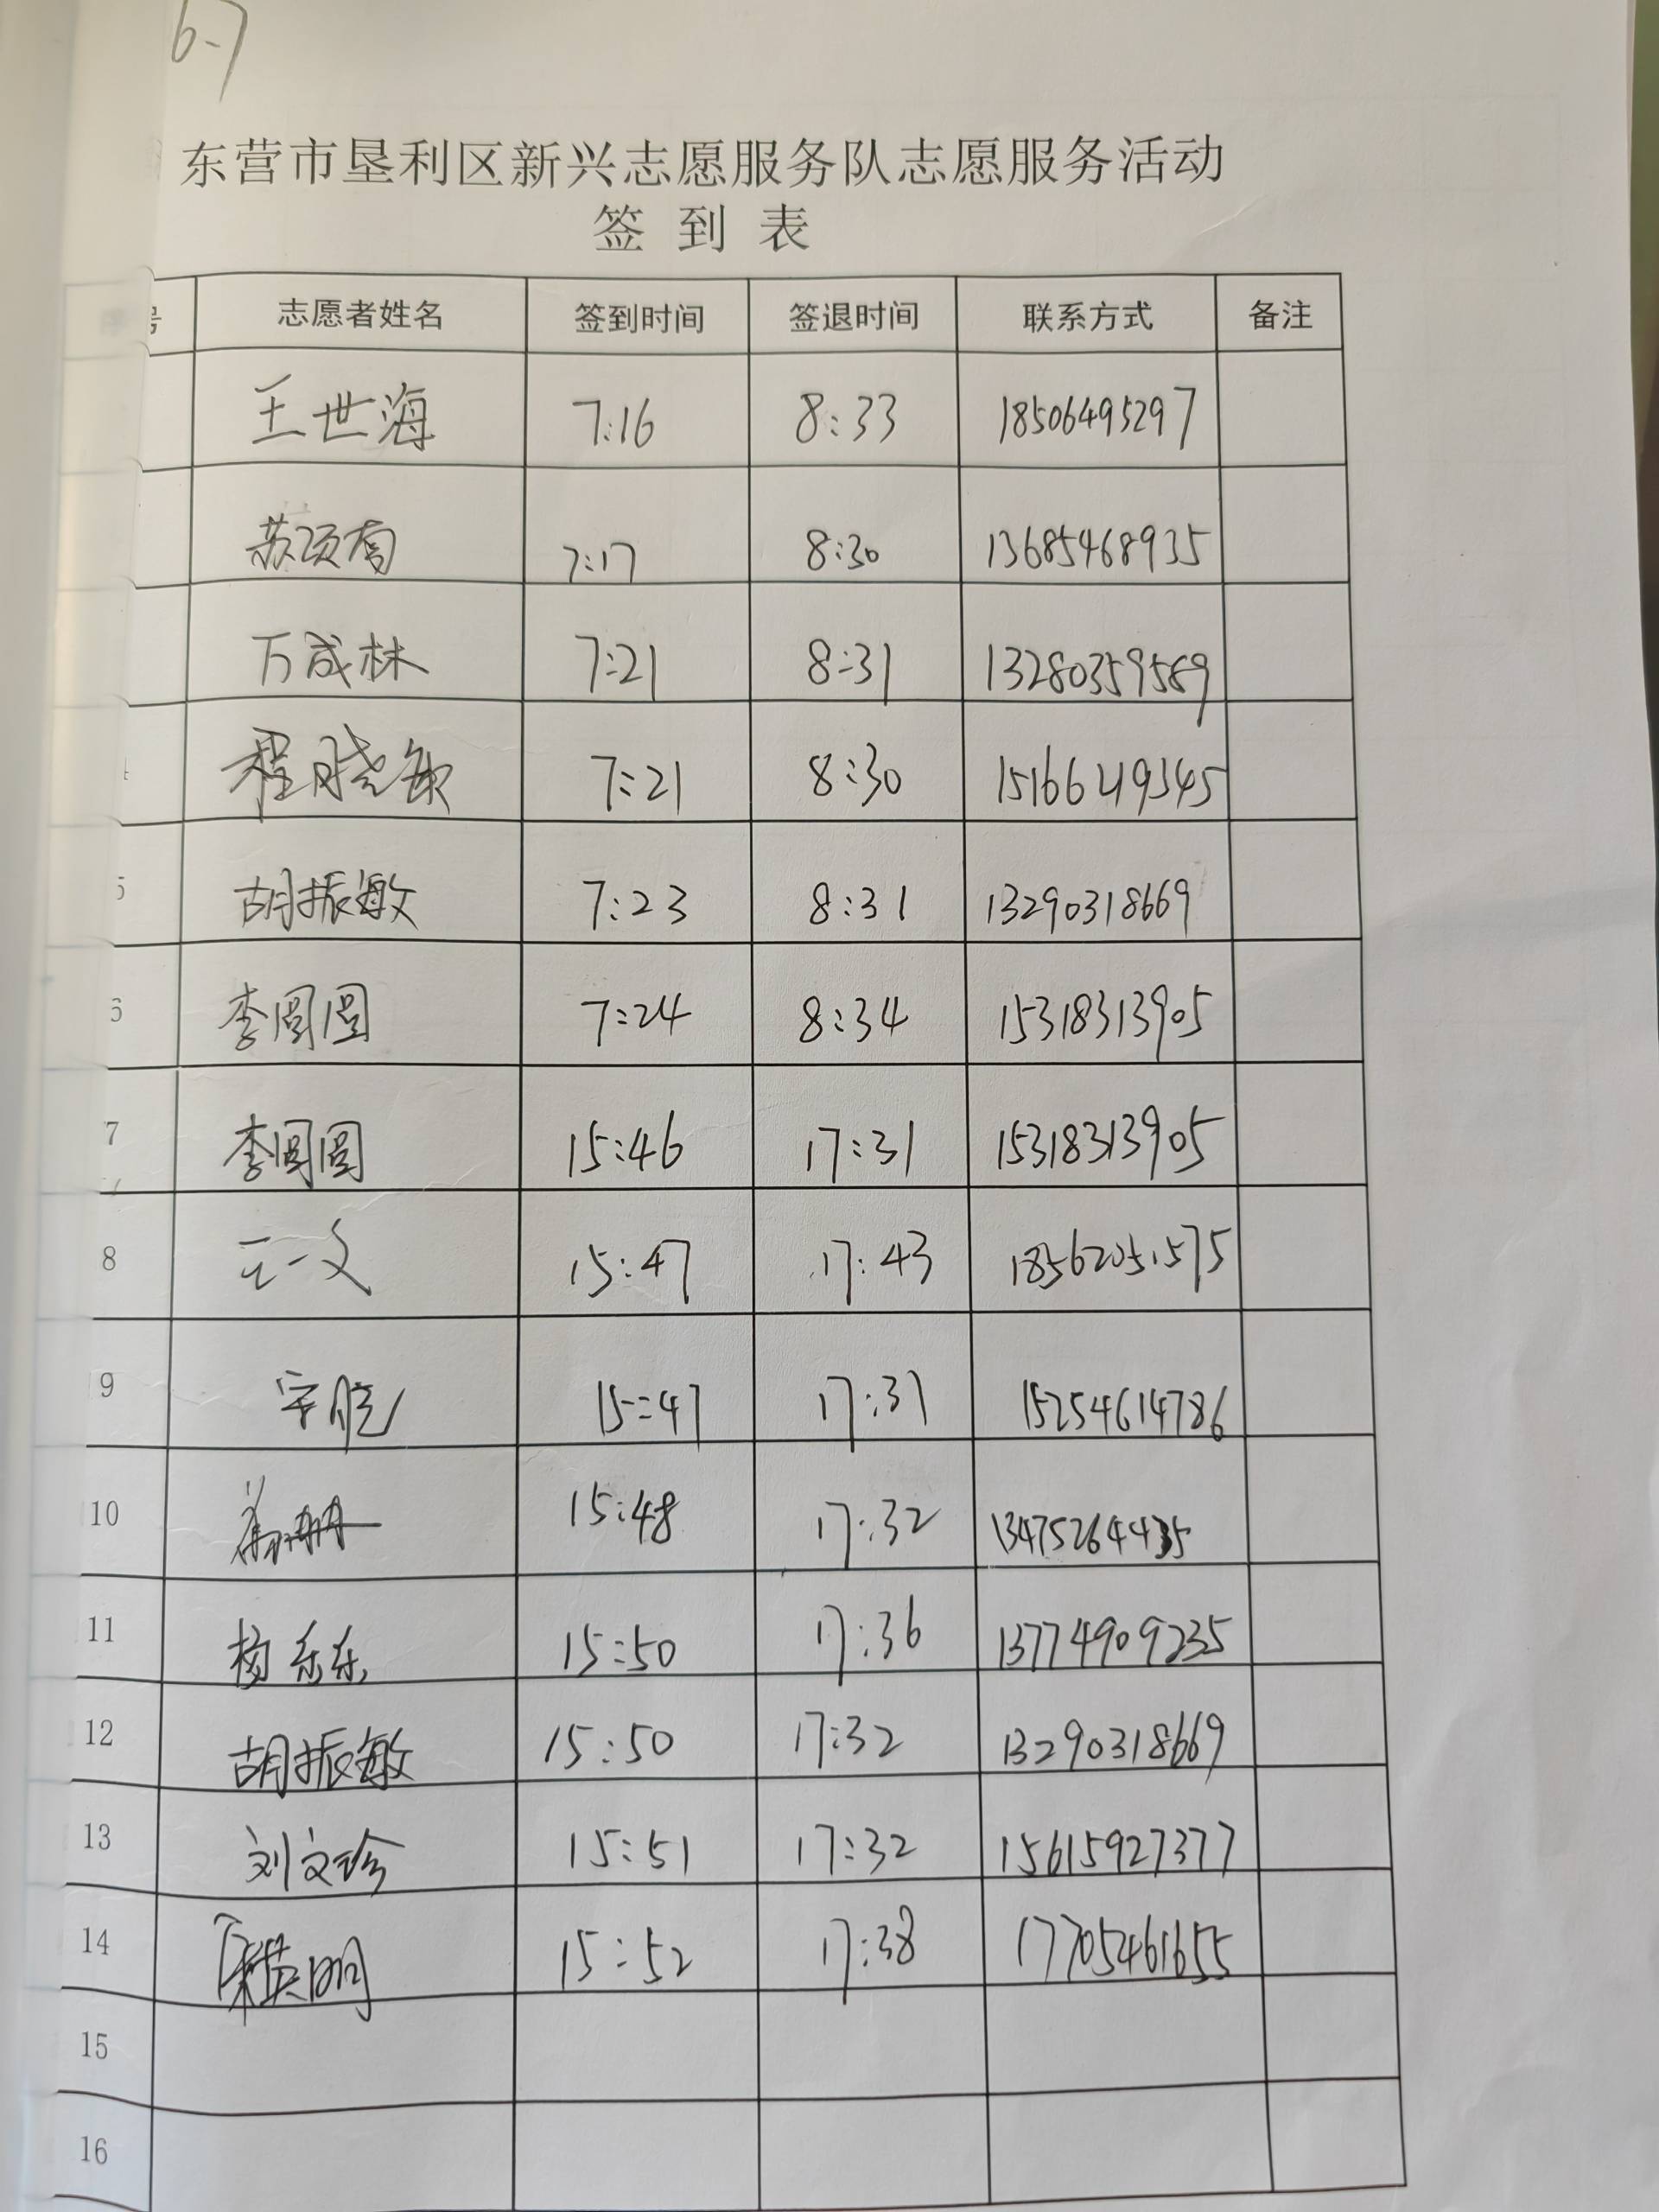 6-7
东营市垦利区新兴志愿服务队志愿服务活动
签 到 表
号 志愿者姓名 签到时间 签退时间 联系方式 备注
王世海 7:16 8:33 18506495297
7:17 8:30 13685468935
万成林 7:21 8:31 13280359589
程晓敏 7:21 8:30 15166219345
5 胡振敏 7:23 8:31 13290318669
6 李圆圆 7:24 8:34 15318313905
7 李圆圆 15:46 17:31 15318313905
8 王一文 15:47 17:43 18562051575
9 15:47 17:37 15254614786
10 15:48 17:32
11 杨东东 15:50 17:36 13774909235
12 胡振敏 15:50 17:32 13290318669
13 刘文珍 15:51 17:32 15615927377
14 15:52 17:38 17705461655
15
16